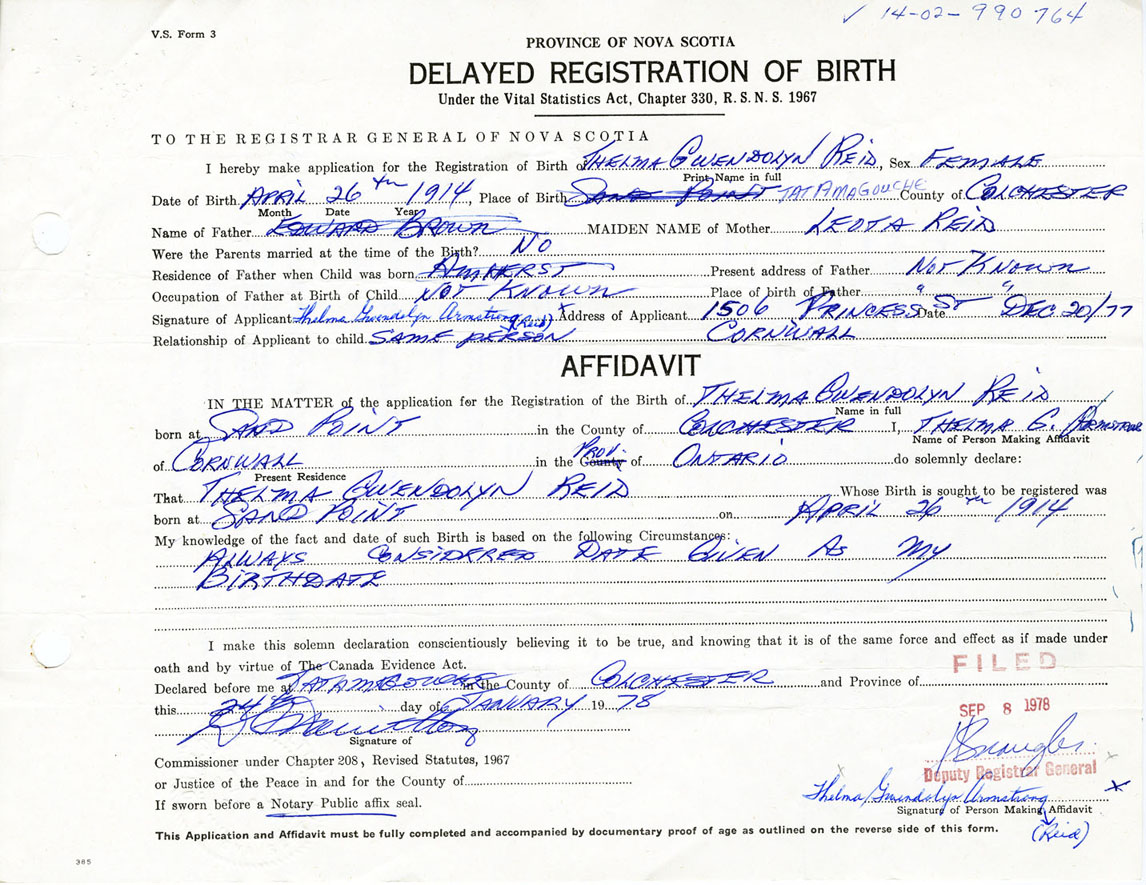 ✓ 14-02-990764
V.S. Form 3
PROVINCE OF NOVA SCOTIA
DELAYED REGISTRATION OF BIRTH
Under the Vital Statistics Act, Chapter 330, R.S.N.S. 1967
TO THE REGISTRAR GENERAL OF NOVA SCOTIA
I hereby make application for the Registration of Birth of THELMA GWENDOLYN REID, Sex FEMALE
Print Name in full
Date of Birth APRIL 26TH 1914, Place of Birth SAND POINT TATAMAGOUCHE County of COLCHESTER
Month Date Year
Name of Father EDWARD BROWN MAIDEN NAME of Mother LEOTA REID
Were the Parents married at the time of the Birth? NO
Residence of Father when Child was born AMHERST Present address of Father NOT KNOWN
Occupation of Father at Birth of Child NOT KNOWN Place of birth of Father " "
Signature of Applicant Thelma Gwendolyn Armstrong (Reid) x Address of Applicant 1506 PRINCESS ST Date DEC 20/77
Relationship of Applicant to child SAME PERSON CORNWALL
AFFIDAVIT
IN THE MATTER of the application for the Registration of the Birth of THELMA GWENDOLYN REID
Name in full
born at SAND POINT in the County of COLCHESTER I, THELMA G. ARMSTRONG
Name of Person Making Affidavit
of CORNWALL in the County PROV. of ONTARIO do solemnly declare:
Present Residence
That THELMA GWENDOLYN REID Whose Birth is sought to be registered was
born at SAND POINT on APRIL 26TH 1914
My knowledge of the fact and date of such Birth is based on the following Circumstances:
ALWAYS CONSIDERED DATE GIVEN AS MY
BIRTHDATE
I make this solemn declaration conscientiously believing it to be true, and knowing that it is of the same force and effect as if made under
oath and by virtue of The Canada Evidence Act.
FILED
Declared before me at TATAMAGOUCHE in the County of COLCHESTER and Province of
this 24th day of JANUARY 1978
SEP 8 1978
Signature of
Commissioner under Chapter 208, Revised Statutes, 1967
Deputy Registrar General
or Justice of the Peace in and for the County of
Thelma Gwendolyn Armstrong x
If sworn before a Notary Public affix seal.
Signature of Person Making Affidavit
(Reid)
This Application and Affidavit must be fully completed and accompanied by documentary proof of age as outlined on the reverse side of this form.
305